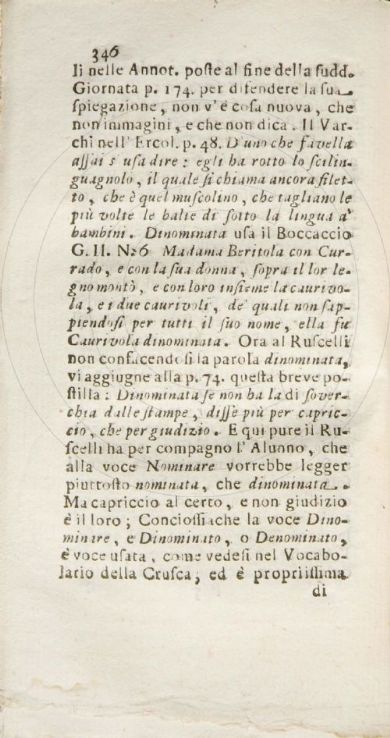 346
li nelle Annot. poste al fine della sudd.
Giornata p. 174. per difendere la sua
spiegazione, non v'è cosa nuova, che
non immagini, e che non dica. Il Var-
chi nell' Ercol. p. 48. D'uno che favella
assai s usa dire: egli ha rotto lo scilin-
guagnolo, il quale si chiama ancora filet-
to, che è quel muscolino, che tagliano le
più volte le balie di sotto la lingua a'
bambini. Dinominata usa il Boccaccio
G. II. N26 Madama Beritola con Cur-
rado, e con la sua donna, sopra il lor le-
gno montò, e con loro insieme la caurivo-
la, e i due caurivoli, de' quali non sap-
piendosi per tutti il suo nome, ella fu
Caurivola dinominata. Ora al Ruscelli
non confacendosi la parola dinominata,
vi aggiugne alla p. 74. questa breve po-
stilla: Dinominata se non ha la di sover-
chia dalle stampe, disse più per capric-
cio, che per giudizio. E qui pure il Ru-
scelli ha per compagno l' Alunno, che
alla voce Nominare vorrebbe legger
piuttosto nominata, che dinominata.
Ma capriccio al certo, e non giudizio
è il loro; Conciossiache la voce Dino-
minare, e Dinominato, o Denominato,
è voce usata, come vedesi nel Vocabo-
lario della Crusca; ed è propriissima
di